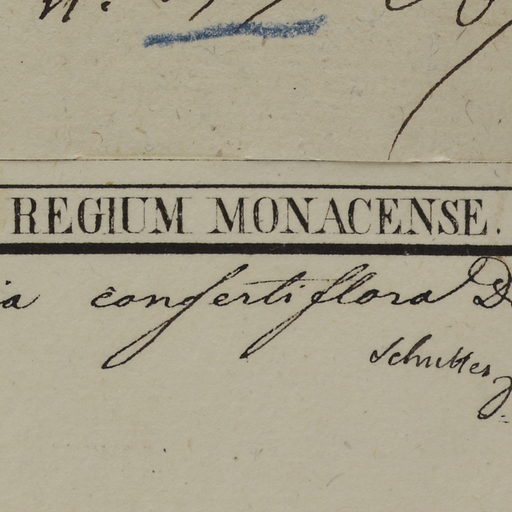 N.
REGIUM MONACENSE.
ia confertiflora D
Schultes